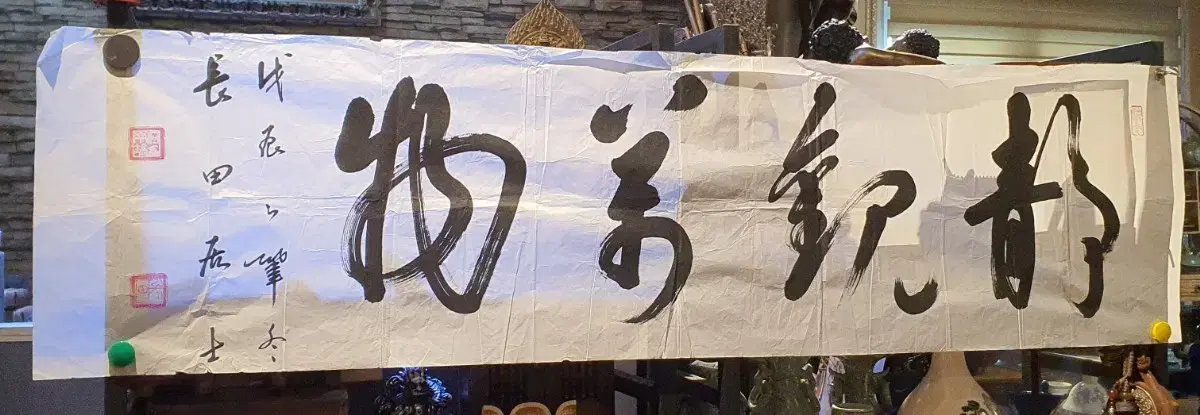 靜觀萬物
戊辰之肇冬
長田居士